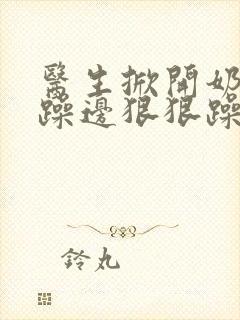 醫生掀開奶
躁邊狠狠躁
鈴丸